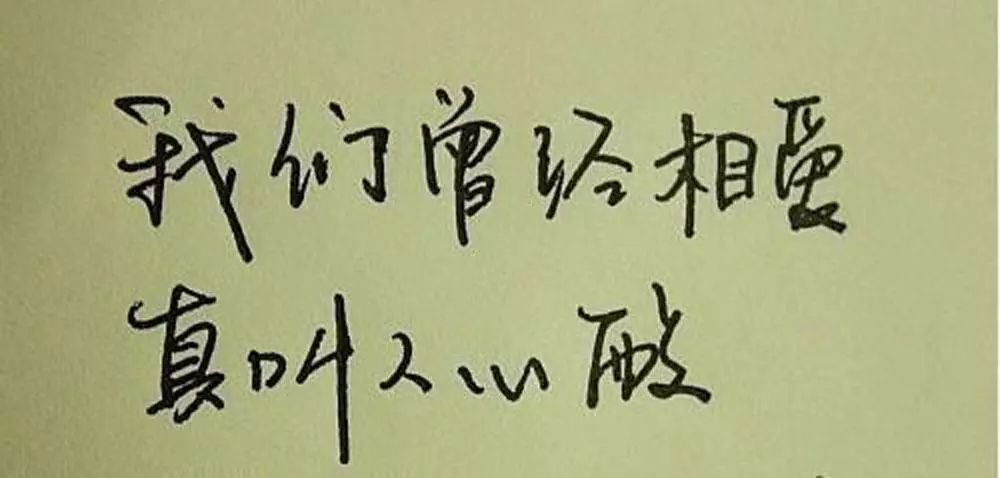 我们曾经相爱
真叫人心酸